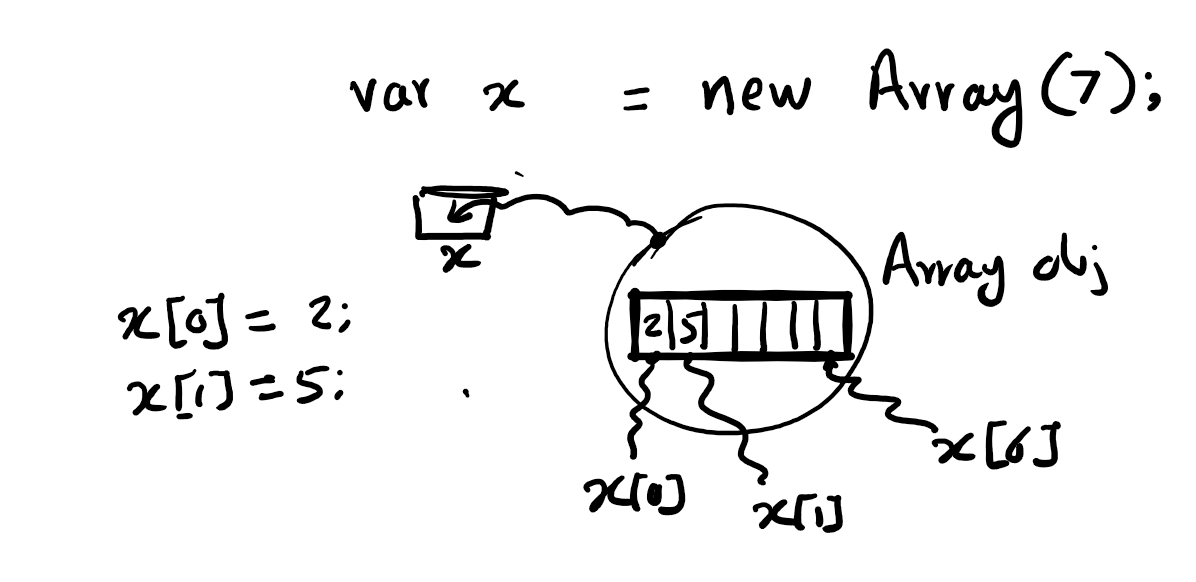 var x = new Array(7);
x
Array obj
x[0] = 2;
2 5
x[1] = 5;
x[6]
x[0]
x[1]